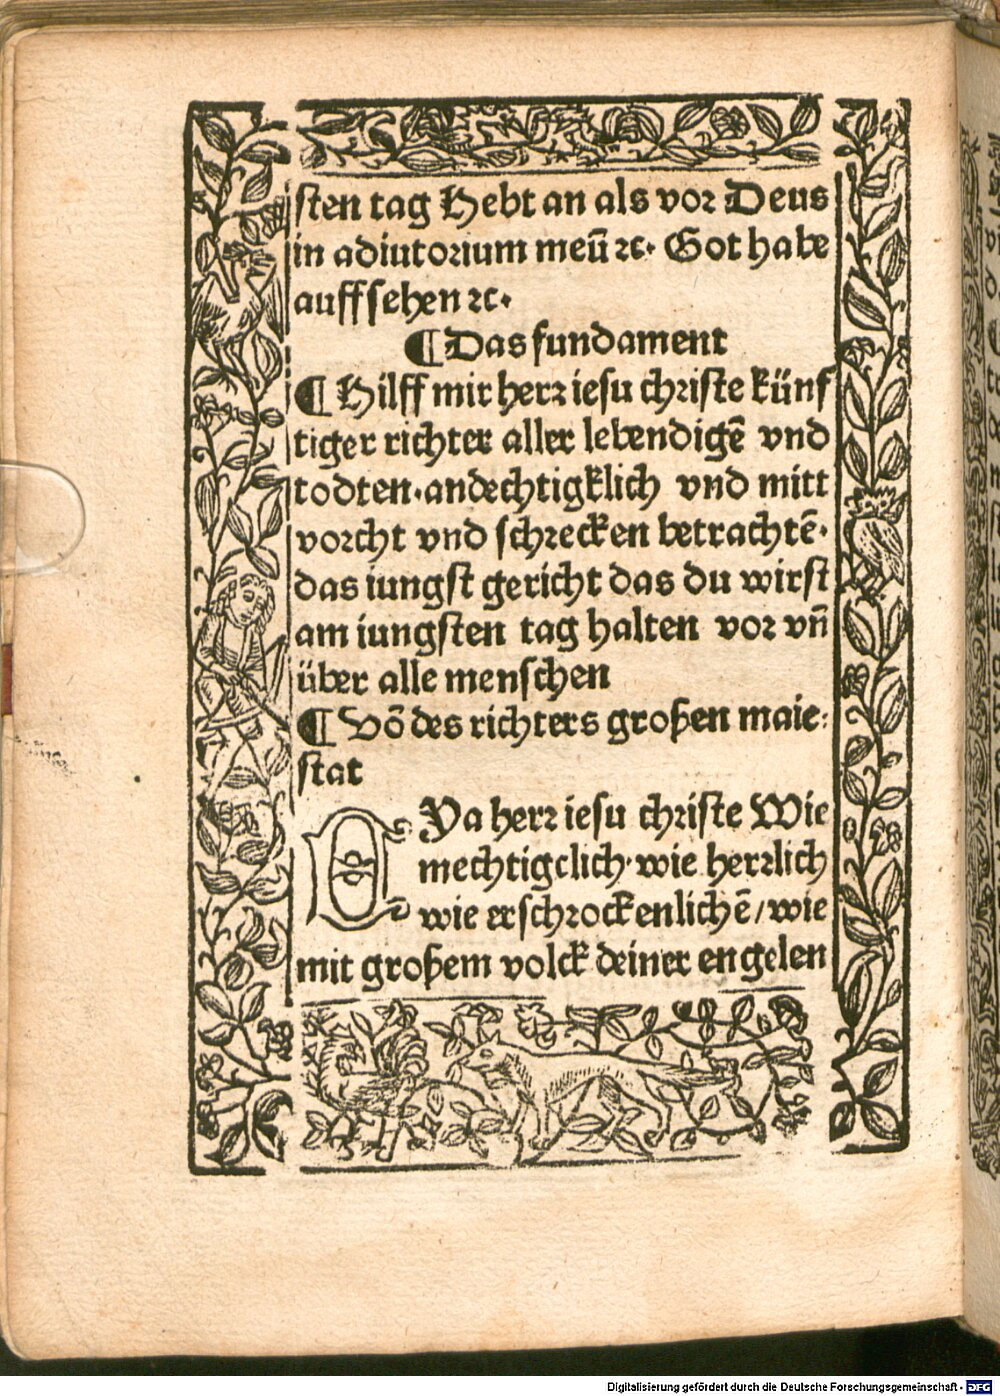 sten tag Hebt an als vor Deus
in adiutorium meū ꝛc. Got habe
auffsehen ꝛc.
¶ Das fundament
¶ Hilff mir herr iesu christe künf
tiger richter aller lebendigē vnd
todten. andechtigklich vnd mitt
vorcht vnd schrecken betrachtē.
das iungst gericht das du wirst
am iungsten tag halten vor vn̄
über alle menschen
¶ Vō des richters großen maie:
stat
EYa herr iesu christe Wie
mechtigclich. wie herrlich
wie erschrockenlichē / wie
mit großem volck deiner engelen
Digitalisierung gefördert durch die Deutsche Forschungsgemeinschaft - DFG